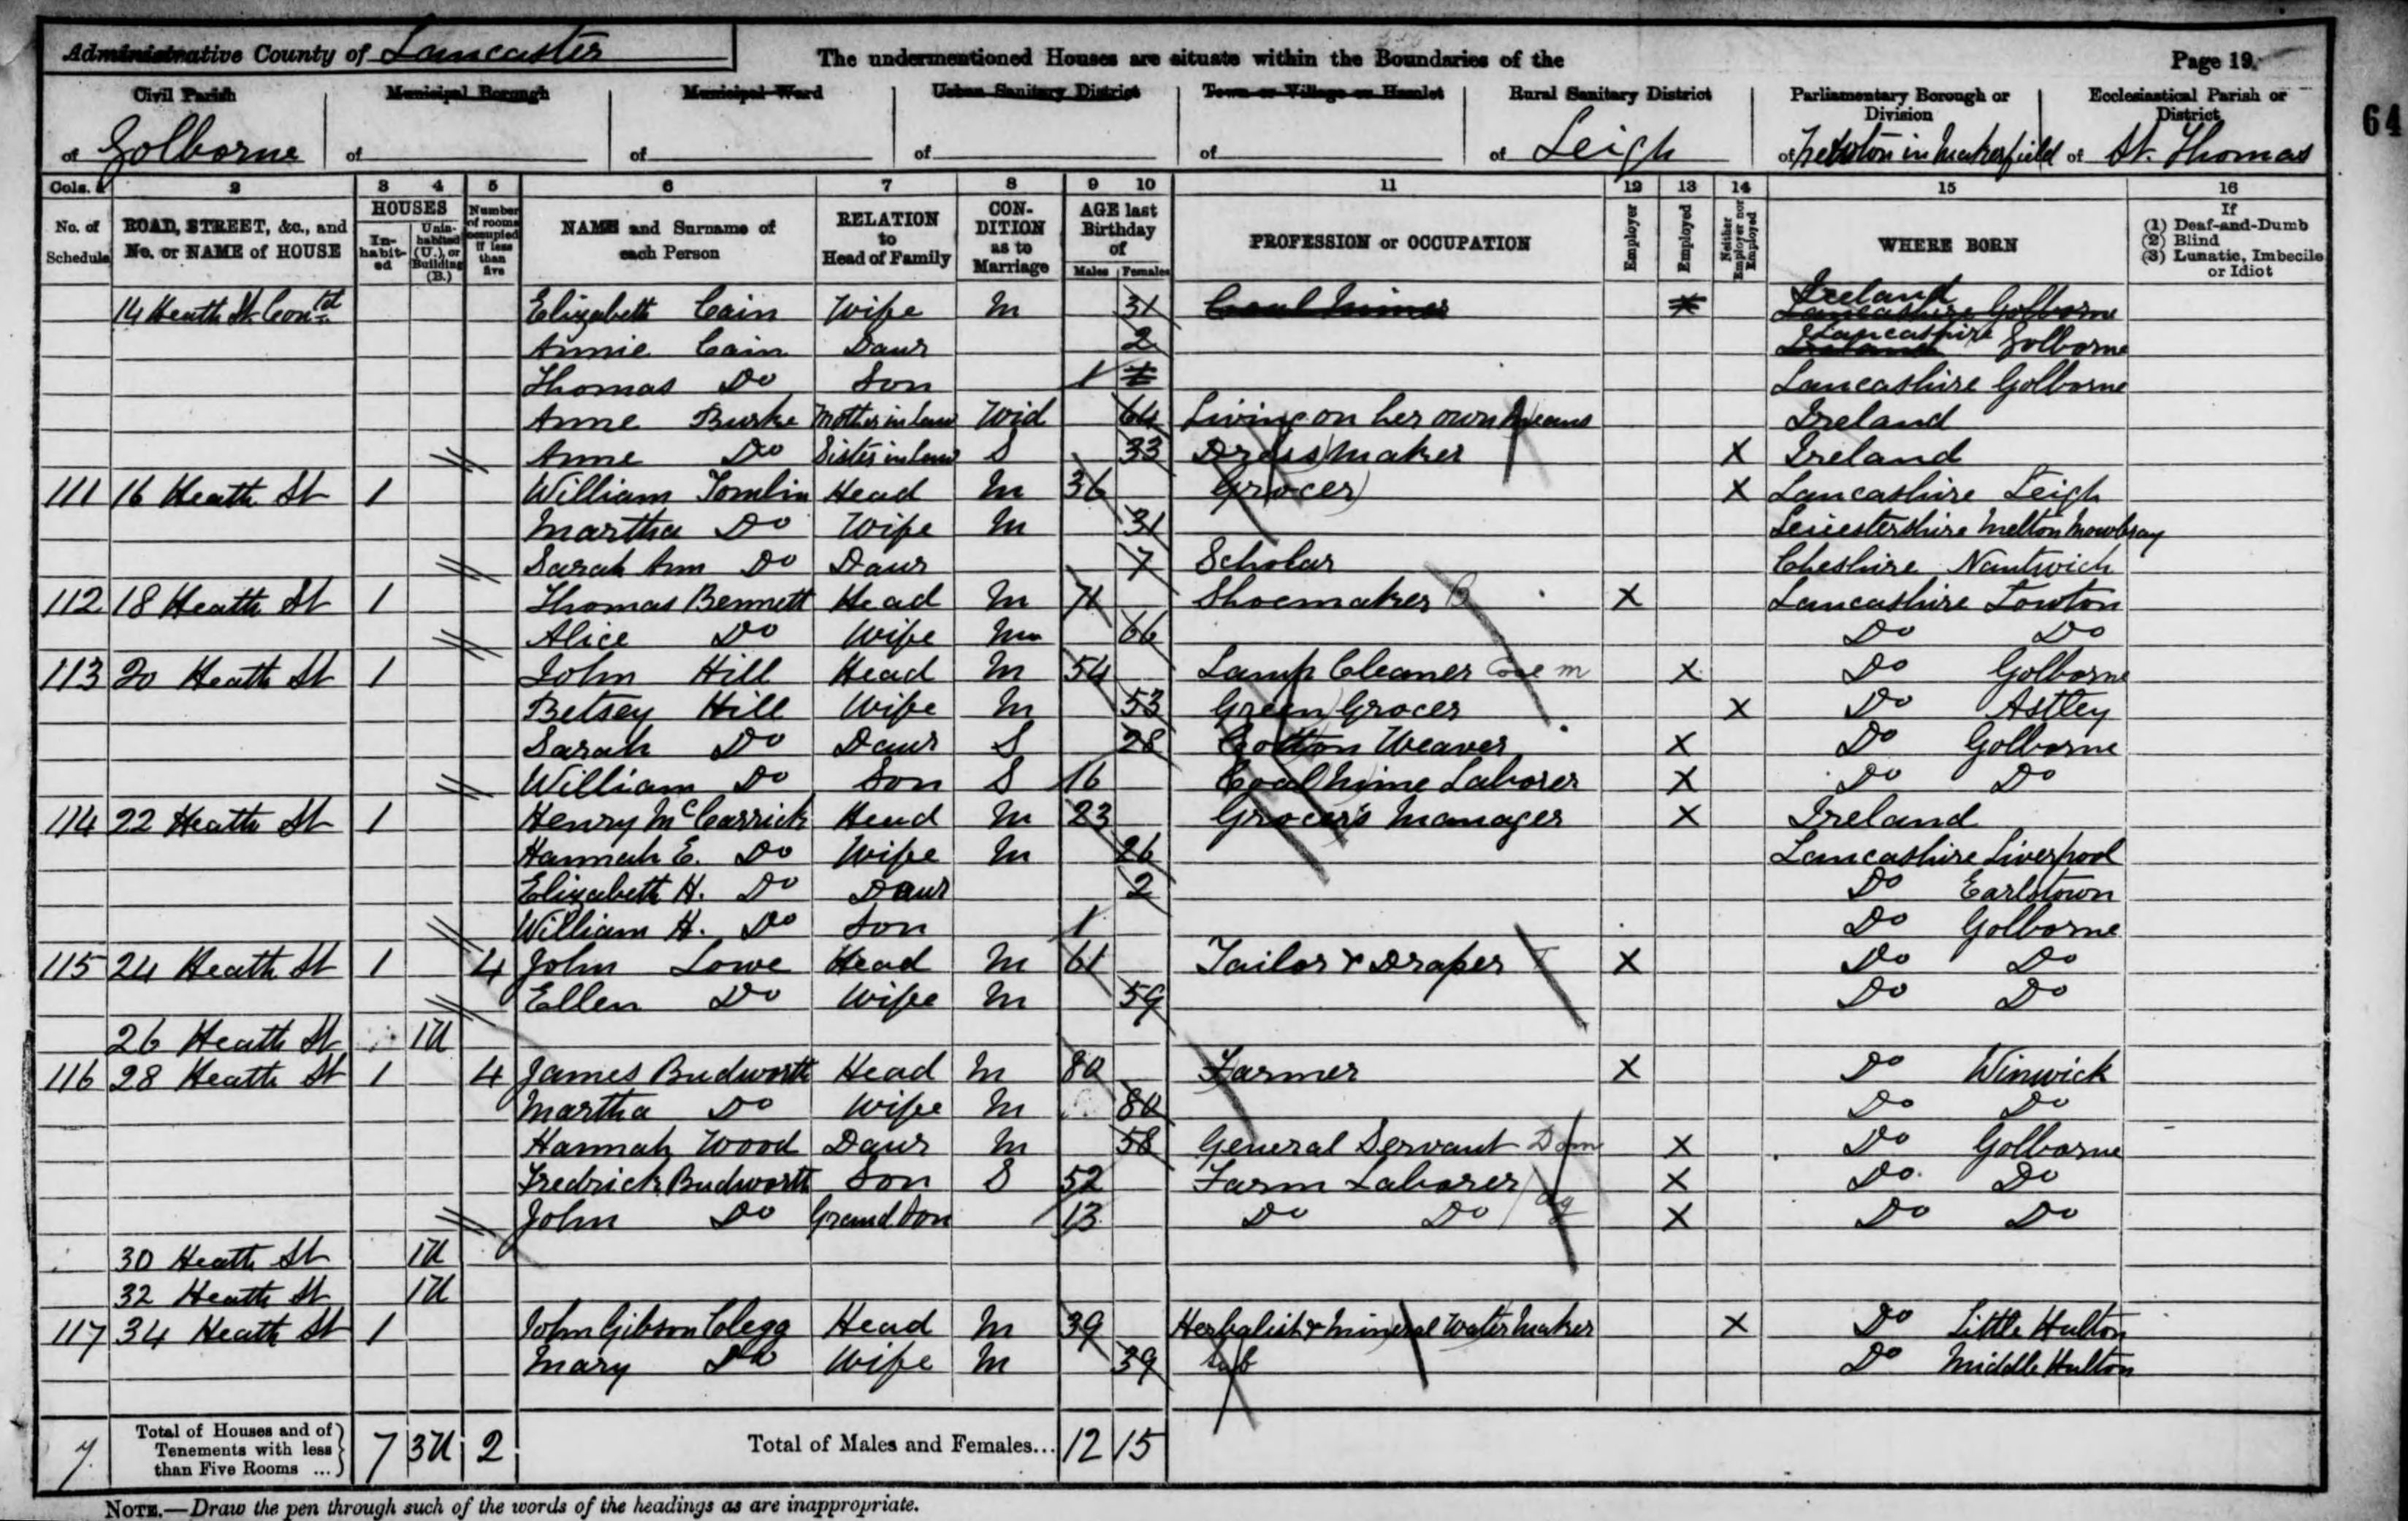 Administrative County of Lancaster The undermentioned Houses are situate within the Boundaries of the Page 19.
64
Civil Parish Municipal Borough Municipal Ward Urban Sanitary District Town or Village or Hamlet Rural Sanitary District Parliamentary Borough or Division Ecclesiastical Parish or District
of Golborne of of of of of Leigh of Newton in Makerfield of St. Thomas
Cols. 1 2 3 4 5 6 7 8 9 10 11 12 13 14 15 16
No. of Schedule ROAD, STREET, &c., and No. or NAME of HOUSE HOUSES In-habit-ed Unin-habited (U.), or Building (B.) Number of rooms occupied if less than five NAME and Surname of each Person RELATION to Head of Family CON-DITION as to Marriage AGE last Birthday of Males Females PROFESSION or OCCUPATION Employer Employed Neither Employer nor Employed WHERE BORN If (1) Deaf-and-Dumb (2) Blind (3) Lunatic, Imbecile or Idiot
14 Heath St Contd Elizabeth Cain Wife M 31 Coal Miner X Ireland Lancashire Golborne
Annie Cain Daur 2 Lancashire Ireland Golborne
Thomas Do Son 1 1 Lancashire Golborne
Anne Burke Mother in law Wid 64 Living on her own Means Ireland
Anne Do Sister in law S 33 Dress maker X Ireland
111 16 Heath St 1 William Tomlin Head M 36 Grocer X Lancashire Leigh
Martha Do Wife M 31 Leicestershire Melton Mowbray
Sarah Ann Do Daur 7 Scholar Cheshire Nantwich
112 18 Heath St 1 Thomas Bennett Head M 71 Shoemaker B X Lancashire Lowton
Alice Do Wife M 66 Do Do
113 20 Heath St 1 John Hill Head M 54 Lamp Cleaner Coal m X Do Golborne
Betsey Hill Wife M 53 Green Grocer X Do Astley
Sarah Do Daur S 28 Cotton Weaver X Do Golborne
William Do Son S 16 Coal Mine Laborer X Do Do
114 22 Heath St 1 Henry McCarrick Head M 23 Grocer's Manager X Ireland
Hannah E. Do Wife M 26 Lancashire Liverpool
Elizabeth H. Do Daur 2 Do Earlstown
William H. Do Son 1 Do Golborne
115 24 Heath St 1 4 John Lowe Head M 61 Tailor & Draper T X Do Do
Ellen Do Wife M 59 Do Do
26 Heath St 1U
116 28 Heath St 1 4 James Budworth Head M 80 Farmer X Do Winwick
Martha Do Wife M 80 Do Do
Hannah Wood Daur M 58 General Servant Dom X Do Golborne
Fredrick Budworth Son S 52 Farm Laborer X Do Do
John Do Grand Son 13 Do Do Ag X Do Do
30 Heath St 1U
32 Heath St 1U
117 34 Heath St 1 John Gibson Clegg Head M 39 Herbalist & Mineral Water Maker X Do Little Hulton
Mary Do Wife M 39 Do Middle Hulton
7 Total of Houses and of Tenements with less than Five Rooms ... 7 3U 2 Total of Males and Females... 12 15
NOTE.—Draw the pen through such of the words of the headings as are inappropriate.